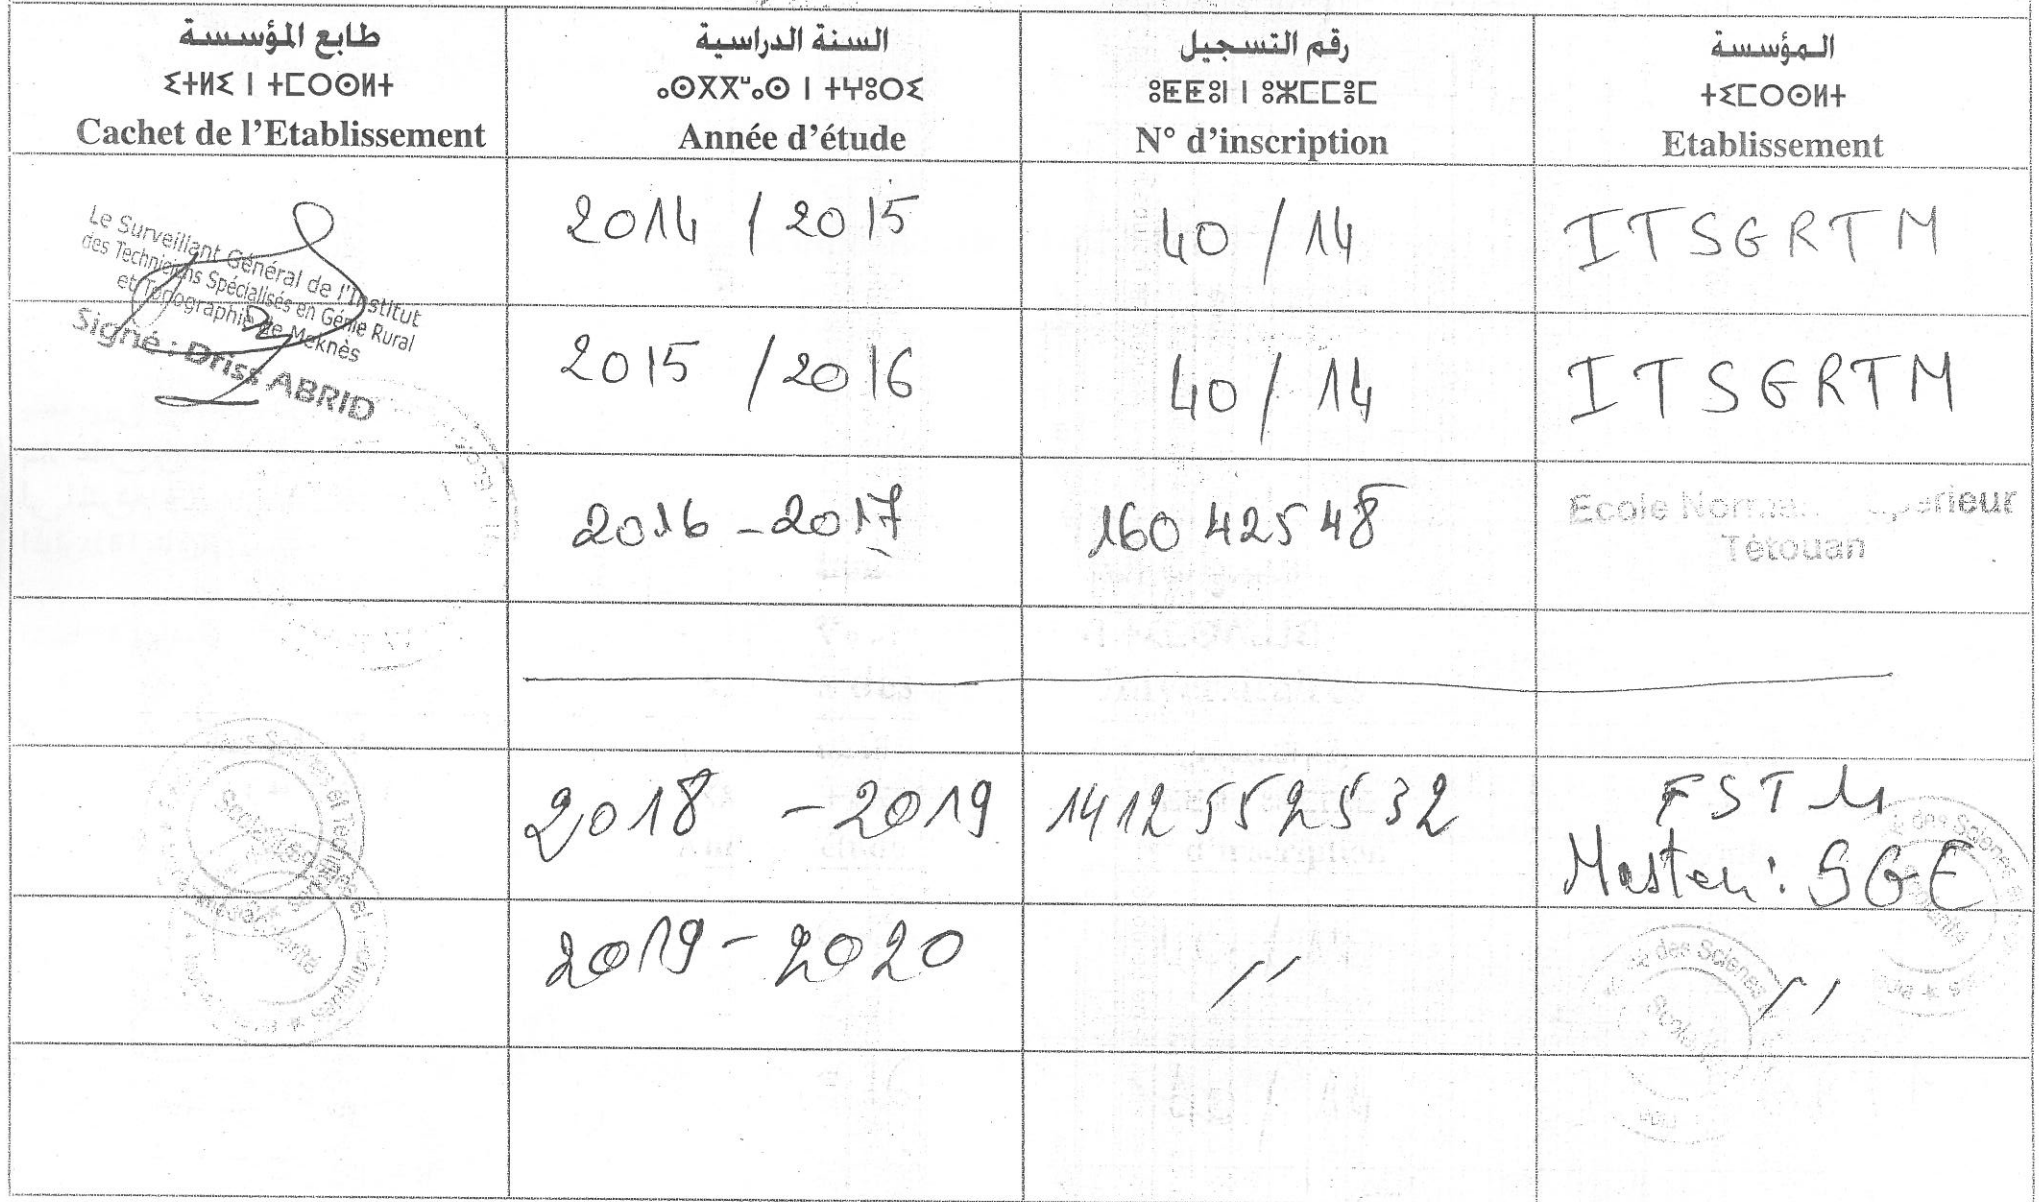 طابع المؤسسة
ⵉⵜⵍⵉ ⵏ ⵜⵎⵔⵙⵍⵜ
Cachet de l'Etablissement
السنة الدراسية
ⴰⵙⴳⴳⵯⴰⵙ ⵏ ⵜⵖⵓⵔⵉ
Année d'étude
رقم التسجيل
ⵓⵟⵟⵓⵏ ⵏ ⵓⵣⵎⵎⴻⵎ
N° d'inscription
المؤسسة
ⵜⵉⵎⵔⵙⵍⵜ
Etablissement
Le Surveillant Général de l'Institut
des Techniciens Spécialisés en Génie Rural
et Topographie de Meknès
Signé : Driss ABRID
2014 / 2015
40 / 14
ITSGRTM
2015 / 2016
40 / 14
ITSGRTM
2016 - 2017
16042548
Ecole
Tétouan
2018 - 2019
1412552532
FSTM
Master : SGE
2019 - 2020
〃
〃
des Sciences et Techniques
des Sciences